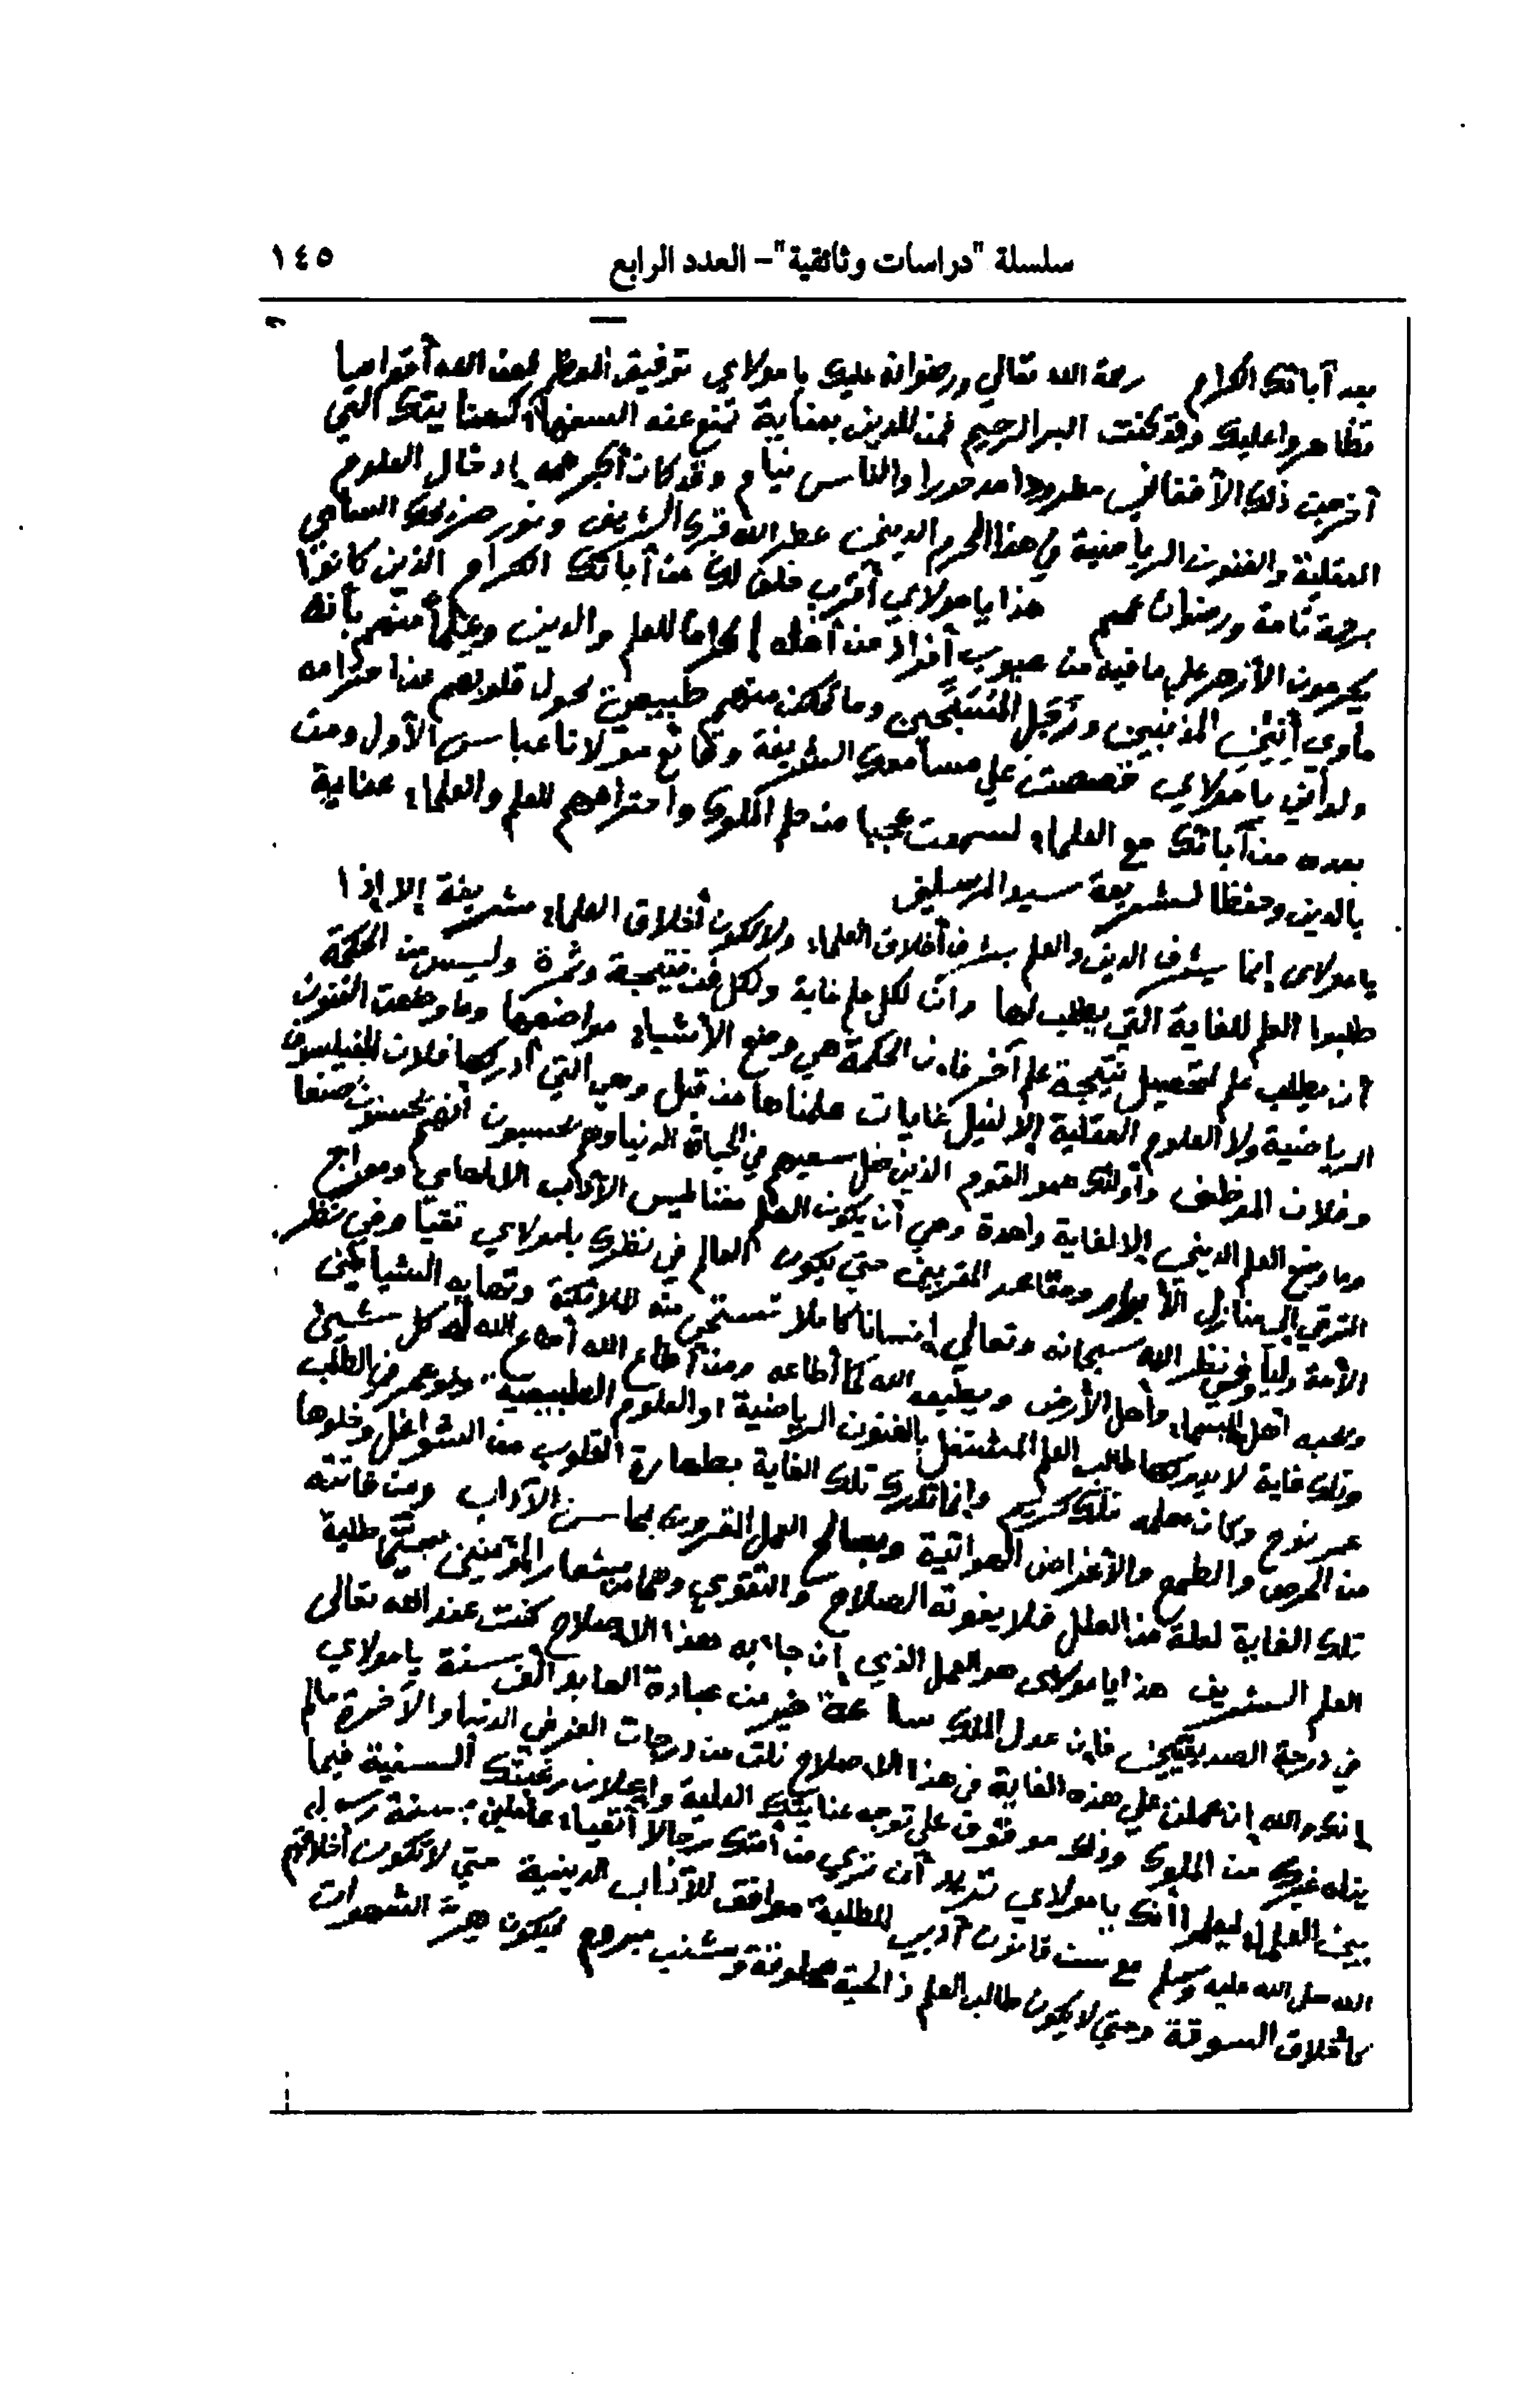 سلسلة "دراسات وثائقية" – العدد الرابع ١٤٥
بعد آبائك الكرام رحمة الله تعالي ورضوانه عليك يا مولاي توفيق المعظم لعن الله أقواما
تظاهروا عليك وقد كنت البر الرحيم فمن للدين بعناية تمنع عنه السفهاء كعنايتك التي
أخرجت ذلك الأفغاني مطرودا مدحورا والناس نيام وقد كان أكبر همه إدخال العلوم
العقلية والفنون الرياضية في هذا الحرم الديني عطر الله قبرك الشريف ونور ضريحك السامي
برحمة تامة ورضوان عميم هذا يا مولاي أقرب خلف لك من آبائك الكرام الذين كانوا
يكرمون الأزهر علي ما فيه من عيوب أفراد من أهله إكراما للعلم والدين وعلما منهم بأنه
مأوي المذنبين وما تمكن منهم طبيعة تحول قلوبهم عن احترامه
ولو أني يا مولاي قصصت علي مسامعك الشريفة وقائع مولانا عباس الأول ومن
بعده من آبائك مع العلماء لسمعت عجبا من حلم الملوك واحترامهم للعلم والعلماء عناية
بالدين وحفظا لشريعة سيد المرسلين
يا مولاي إنما يشرف الدين والعلم بشرف أخلاق العلماء ولا تكون أخلاق العلماء شريفة إلا إذا
طلبوا العلم للغاية التي يطلب لها وان لكل علم غاية ولكل فن نتيجة وثمرة وليس من الحكمة
ان يطلب علم لتحصيل نتيجة علم آخر فان الحكمة هي وضع الأشياء مواضعها وما وضعت الفنون
الرياضية ولا العلوم العقلية إلا لنيل غايات علمناها من قبل وهي التي أدركها فلان الفيلسوف
وفلان الموظف وأولئك هم القوم الذين ضل سعيهم في الحياة الدنيا وهم يحسبون أنهم يحسنون صنعا
وما وضع العلم الديني إلا لغاية واحدة وهي أن يكون العلم مغناطيس الآداب الالهامي ومعراج
الترقي إلي منازل الأبرار ومقاعد المقربين حتي يكون العالم في نظرك يا مولاي تقيا وفي نظر
الأمة وليا وفي نظر الله سبحانه وتعالي إنسانا كاملا تستحي منه الملائكة وتهابه الشياطين
ويحبه أهل السماء وأهل الأرض ويطيعه الله كما أطاعه ومن أطاع الله أطاع الله له كل شيئ
وتلك غاية لا يدركها طالب العلم المشتغل بالفنون الرياضية او العلوم الطبيعية ولو عمر في الطلب
عمر نوح وكان معلمه ملك كريم وإنما تدرك تلك الغاية بطهارة القلوب من الشواغل وخلوها
من الحرص والطمع والأغراض الهوائية وبصالح العمل المقرون بمحاسن الآداب ومن فاتته
تلك الغاية لعلة من العلل فلا يفوته الصلاح والتقوي وهما من شعار المؤمنين طلبة
العلم الشريف هذا يا مولاي هو العمل الذي إن جاء به هذا الاصلاح كنت عند الله تعالى
في درجة الصديقين فإن عدل الملك ساعة خير من عبادة العابد ألف سنة يا مولاي
إنك والله إن عملت علي هذه الغاية في هذا الاصلاح نلت من درجات العز في الدنيا والآخرة مالم
ينله غيرك من الملوك وذلك موقوف علي توجه عنايتك العلية وإعلان رغبتك السنية فيما
بين العلماء ليعلموا أنك يا مولاي تريد أن تري من أمتك رجالا أتقياء عاملين بسنة رسول
الله صلى الله عليه وسلم مع سن قانون أدبي للطلبة موافق للآداب الدينية حتي لا تكون أخلاقهم
كأخلاق السوقة وحتي لا يكون طالب العلم ذا لحية محلوقة وشنب مبروم ليكون